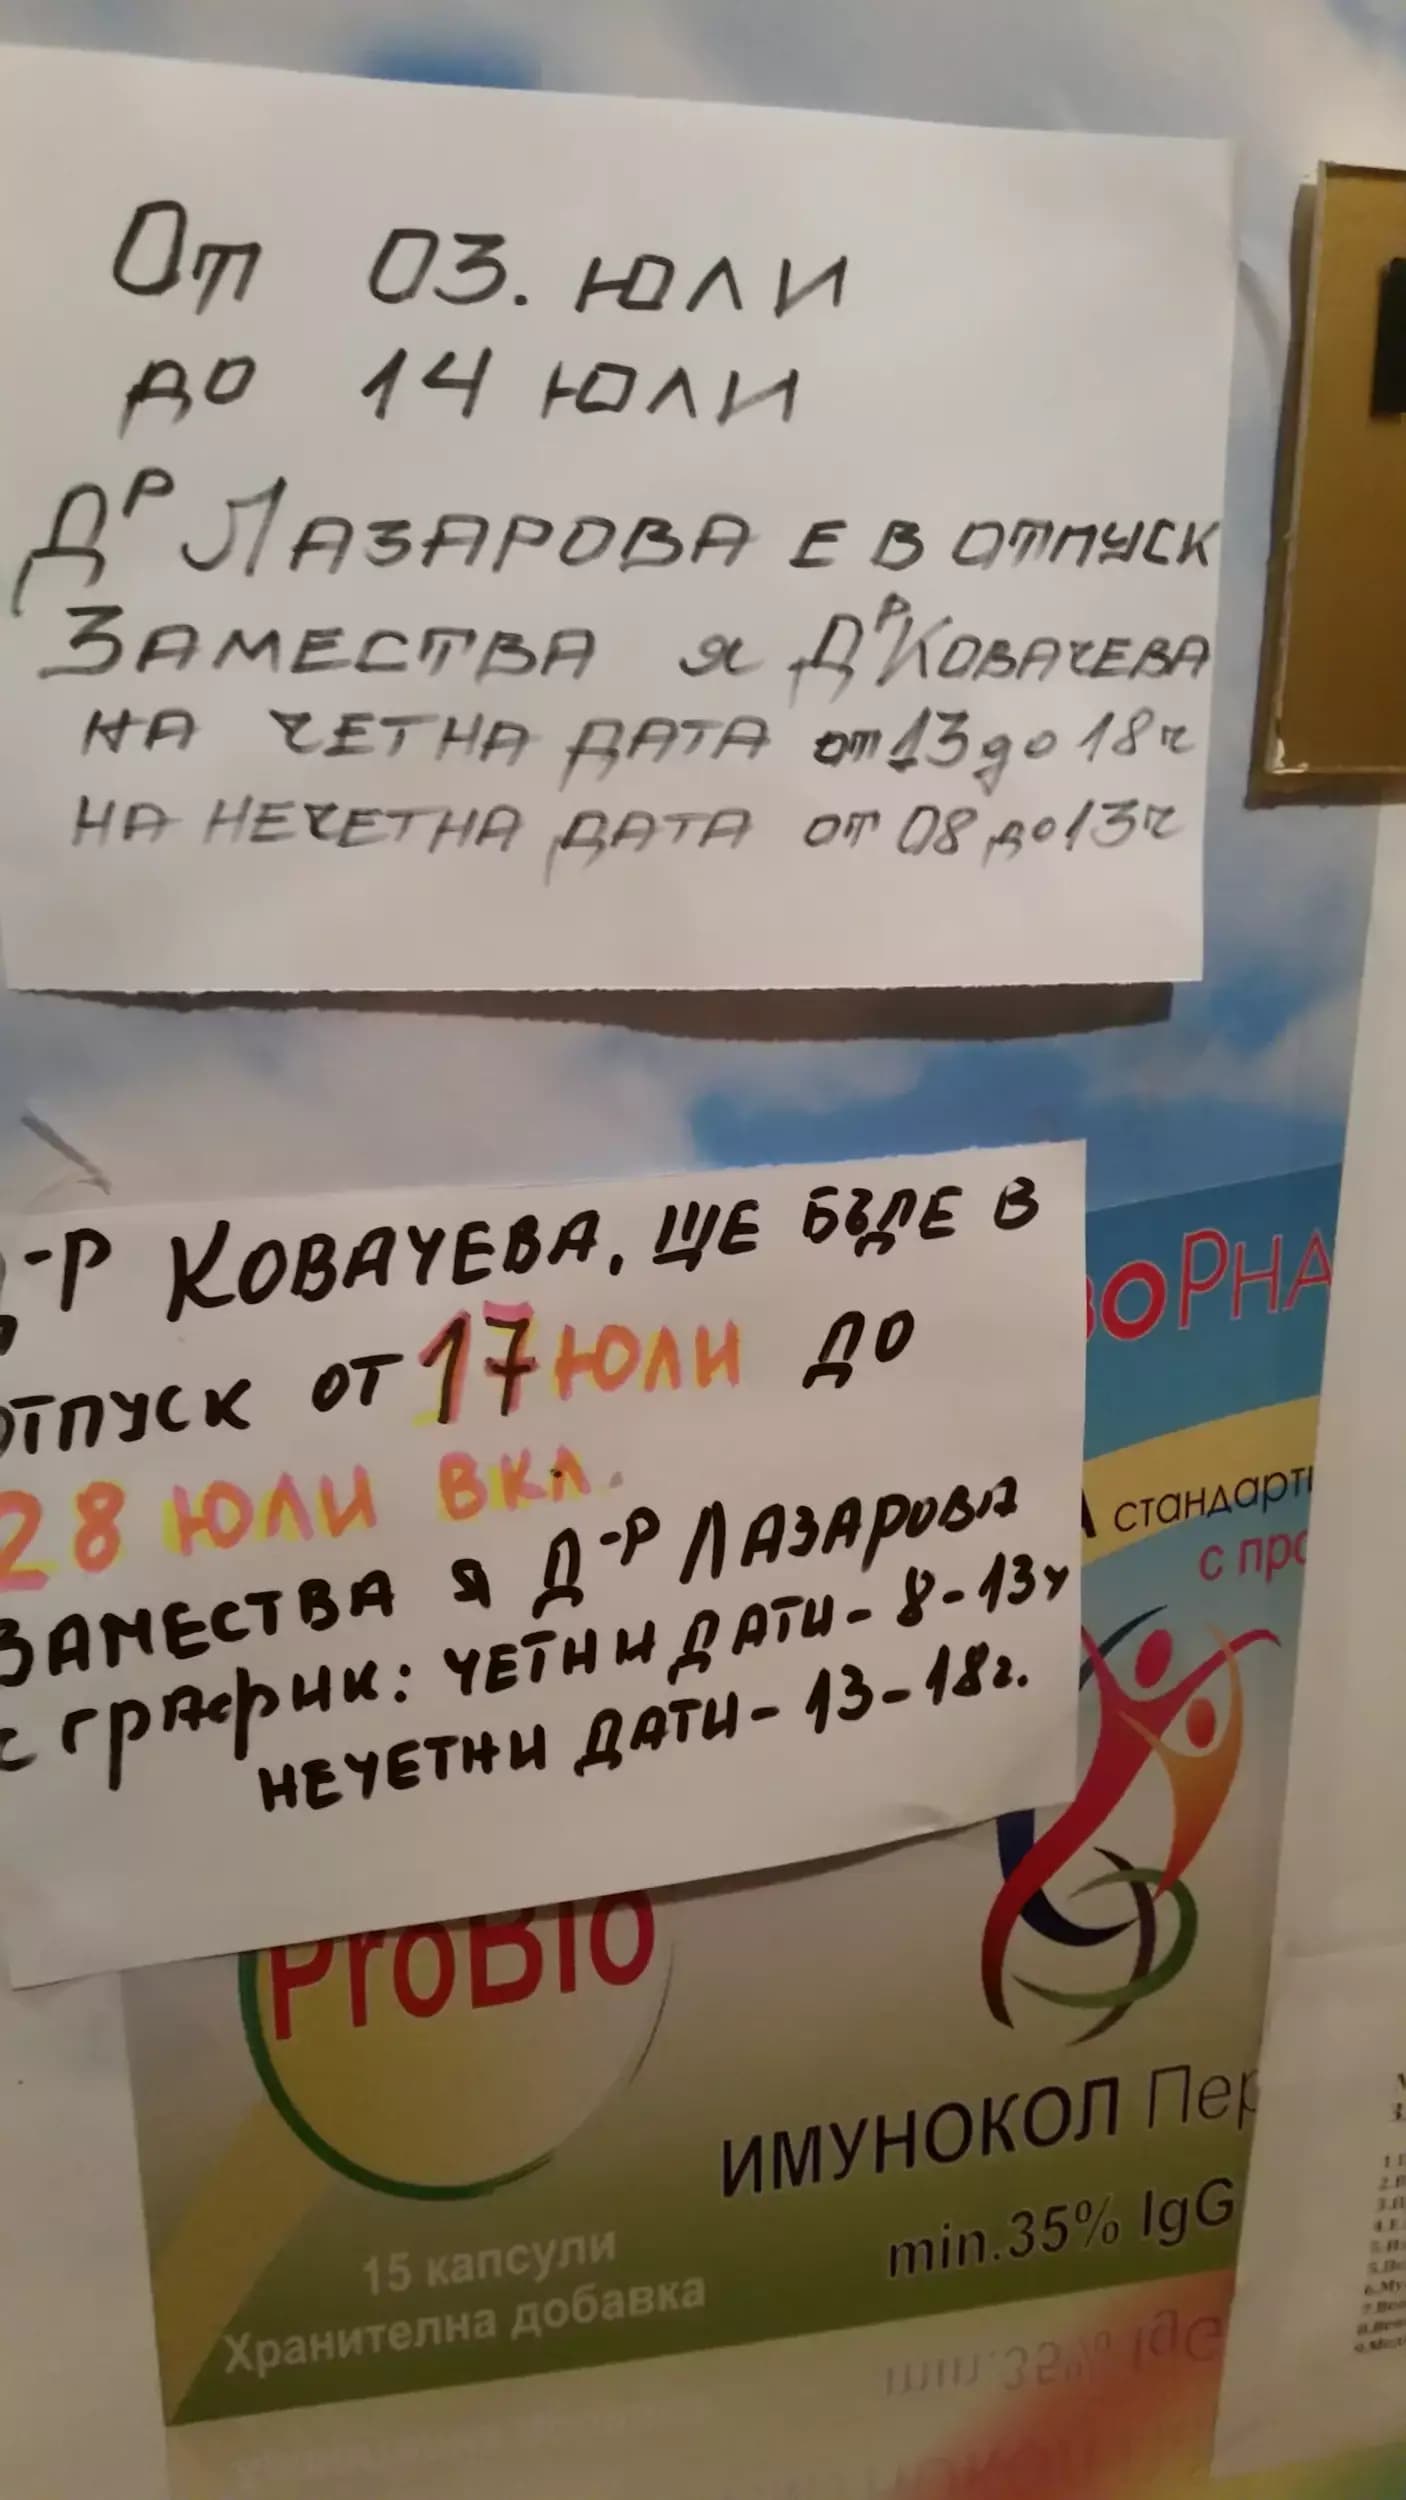 От 03. ЮЛИ
ДО 14 ЮЛИ
ДР ЛАЗАРОВА Е В ОТПУСК
ЗАМЕСТВА Я ДР КОВАЧЕВА
НА ЧЕТНА ДАТА от 13 до 18ч
НА НЕЧЕТНА ДАТА от 08 до 13ч
Д-Р КОВАЧЕВА, ЩЕ БЪДЕ В
ОТПУСК ОТ 17 ЮЛИ ДО
28 ЮЛИ ВКЛ.
ЗАМЕСТВА Я Д-Р ЛАЗАРОВА
С ГРАФИК: ЧЕТНИ ДАТИ - 8-13ч
НЕЧЕТНИ ДАТИ - 13-18ч.
стандарт
с про
ProBio
ИМУНОКОЛ Пер
min.35% IgG
15 капсули
Хранителна добавка